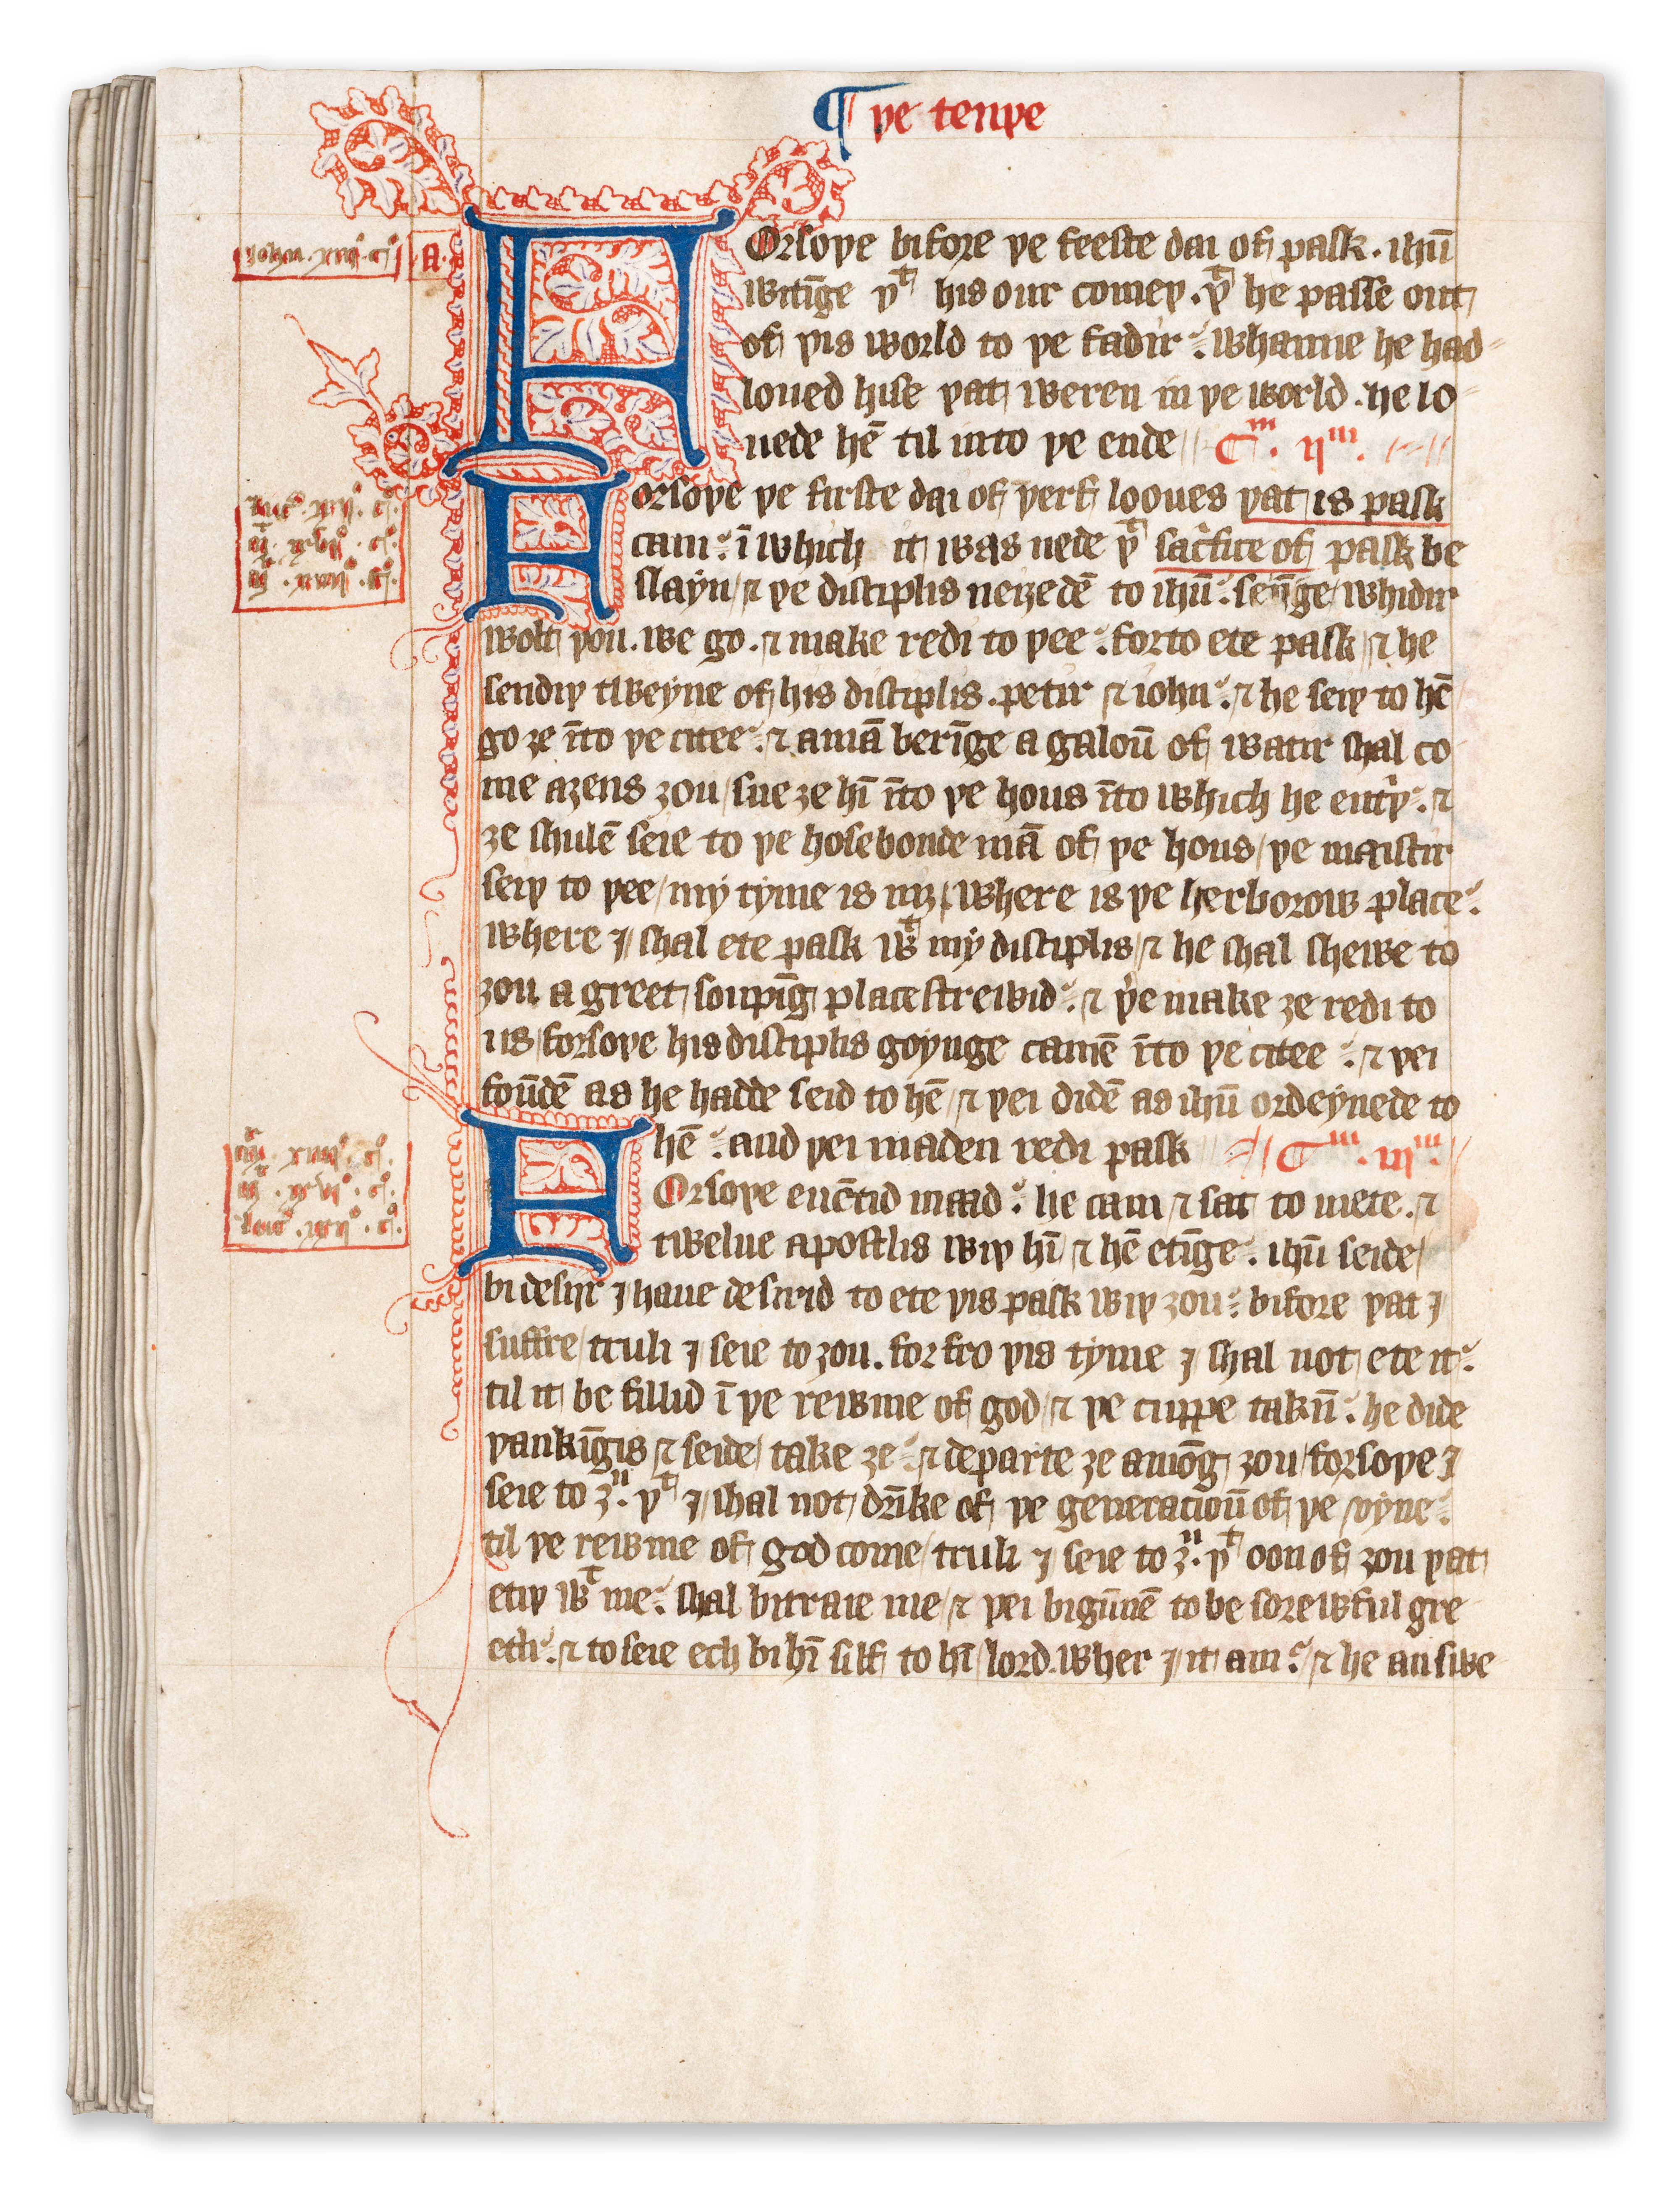 ¶ þe tenþe
John. xiii°. c°. A.
FOrsoþe bifore þe feeste dai of pask. ihū
witīge þͭ his our comeþ. þͭ he passe out
of þis world to þe fadir: whanne he had
loued hise þat weren in þe world. he lo
uede hē til into þe ende Cᵐ. iiᵐ.
Forsoþe þe firste dai of þerf looues þat is pask
cam: ī which it was nede þͭ sacͬfice of pask be
slayn/ ⁊ þe disciplis neiȝedē to ihū: seiȳge/ whidir
wolt þou. we go. ⁊ make redi to þee: forto ete pask/ ⁊ he
sendiþ tweyne of his disciplis. petir ⁊ iohn: ⁊ he seiþ to hē
go ȝe īto þe citee: ⁊ a mā berīge a galoū of watir shal co
me aȝens ȝou/ sue ȝe hī īto þe hous īto which he entͬþ: ⁊
ȝe shulē seie to þe hosebonde mā of þe hous/ þe maistir
seiþ to þee/ my tyme is niȝ/ where is þe herborow place:
where I shal ete pask wͭ my disciplis/ ⁊ he shal shewe to
ȝou a greet soupīg place strewid: ⁊ þͤe make ȝe redi to
us/ forsoþe his disciplis goynge camē īto þe citee: ⁊ þei
foūdē as he hadde seid to hē/ ⁊ þei didē as ihū ordeynede to
hē: and þei maden redi pask Cᵐ. iiiᵐ.
FOrsoþe euētid maad: he cam ⁊ sat to mete. ⁊
twelue apostlis wiþ hī/ ⁊ hē etīge. ihū seide/
bi desijr I haue desirid to ete þis pask wiþ ȝou: bifore þat I
suffre/ truli I seie to ȝou. for fro þis tyme I shal not ete it:
til it be fillid ī þe rewme of god/ ⁊ þe cuppe takū: he dide
þankīgis ⁊ seide/ take ȝe: ⁊ departe ȝe amōg ȝou/ forsoþe I
seie to ȝͧ. þͭ I shal not drīke of þe generacioū of þe vyne:
til þe rewme of god come/ truli I seie to ȝͧ. þͭ oon of ȝou þat
etiþ wͭ me: shal bitraie me/ ⁊ þei bigūnē to be sorewful gre
etli: ⁊ to seie ech bi hī silf to hī/ lord. wher I it am: ⁊ he answe